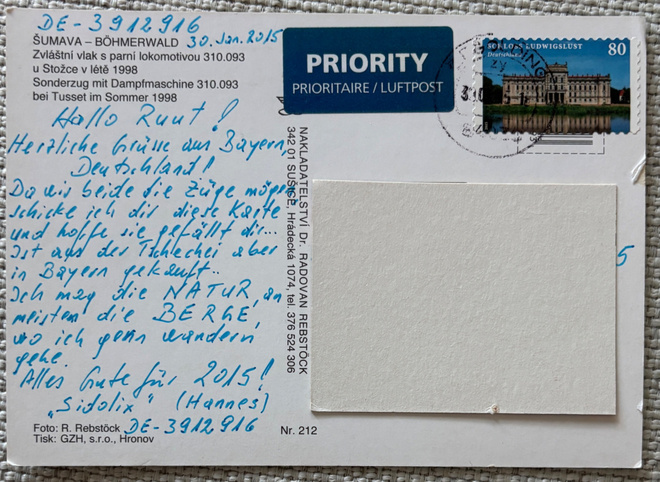 DE-3912916
ŠUMAVA – BÖHMERWALD 30. Jan. 2015
Zvláštní vlak s parní lokomotivou 310.093
u Stožce v létě 1998
Sonderzug mit Dampfmaschine 310.093
bei Tusset im Sommer 1998
Hallo Ruut!
Herzliche Grüsse aus Bayern,
Deutschland!
Da wir beide die Züge mögen
schicke ich dir diese Karte
und hoffe sie gefällt dir...
Ist aus der Tschechei aber
in Bayern gekauft..
Ich mag die NATUR, am
meisten die BERGE,
wo ich gern wandern
gehe.
Alles Gute für 2015!
"Sidolix" (Hannes)
DE-3912916
Foto: R. Rebstöck
Tisk: GZH, s.r.o., Hronov
Nr. 212
NAKLADATELSTVÍ Dr. RADOVAN REBSTÖCK
342 01 SUŠICE, Hrádecká 1074, tel. 376 524 306
PRIORITY
PRIORITAIRE / LUFTPOST
SCHLOSS LUDWIGSLUST 80
Deutschland
5